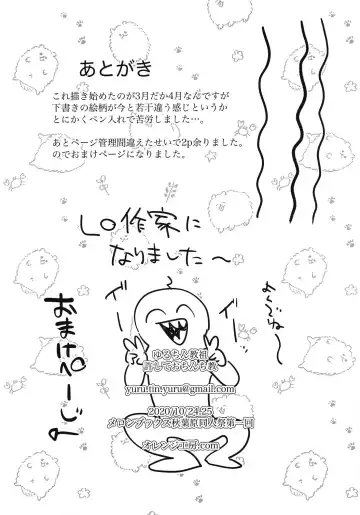 あとがき
これ描き始めたのが3月だか4月なんですが
下書きの絵柄が今と若干違う感じというか
とにかくペン入れで苦労しました…。
あとページ管理間違えたせいで2p余りました。
のでおまけページになりました。
LO作家に
なりました〜
よろしくね〜
おまけぺーじ
ゆるちん教祖
許しておちんち教
yuru.tin.yuru@gmail.com
2020/10/24,25
メロンブックス秋葉原同人祭第一回
オレンジ工房.com